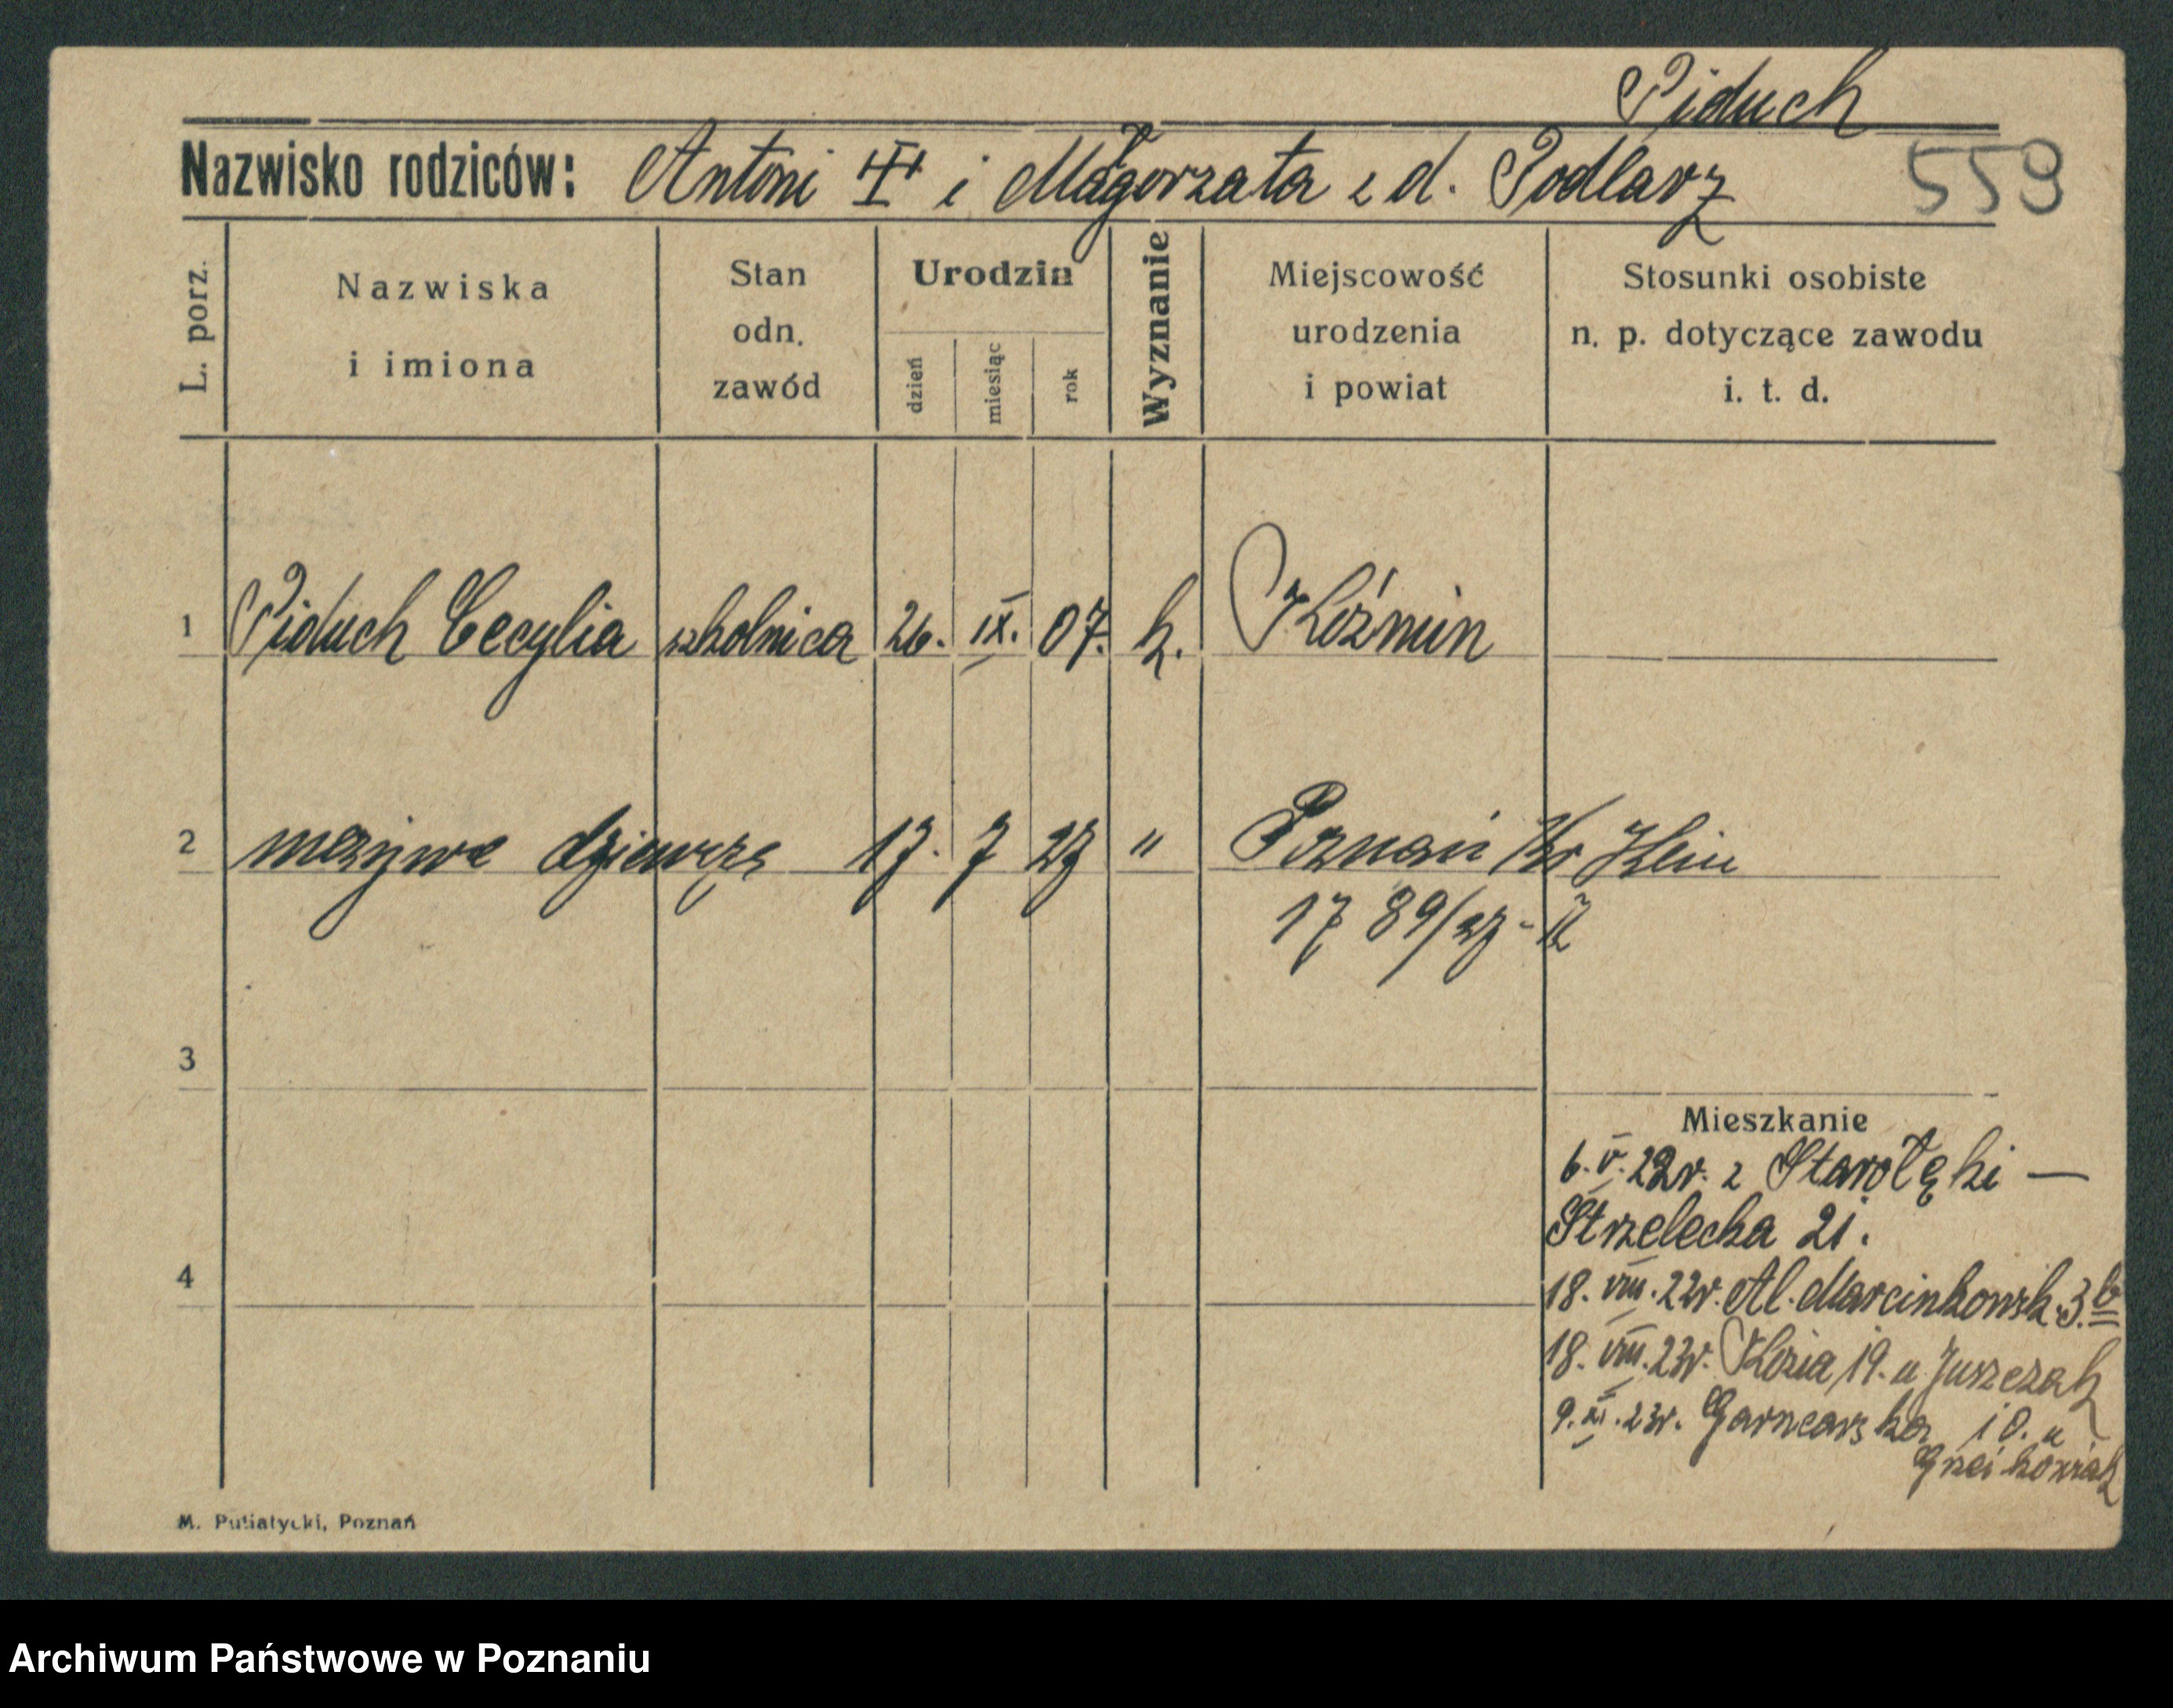 Piduch
Nazwisko rodziców: Antoni i Małgorzata z d. Podlarz 559
L. porz.
Nazwiska i imiona
Stan odn. zawód
Urodzin
dzień miesiąc rok
Wyznanie
Miejscowość urodzenia i powiat
Stosunki osobiste n. p. dotyczące zawodu i. t. d.
1 Piduch Cecylia szkolnica 26. IX. 07. k. Koźmin
2 nieżywe dziewczę 17. 7 27 " Poznań
17 89/27 - II
3
Mieszkanie
6. V. 22r. z Starołęki —
Strzelecka 21.
4
18. VIII. 22r. Al. Marcinkowsk. 3.b
18. VIII. 23r. Kozia 19. u Juszczak
9. XI. 23r. Garncarska 10. u
M. Putiatycki, Poznań
Archiwum Państwowe w Poznaniu